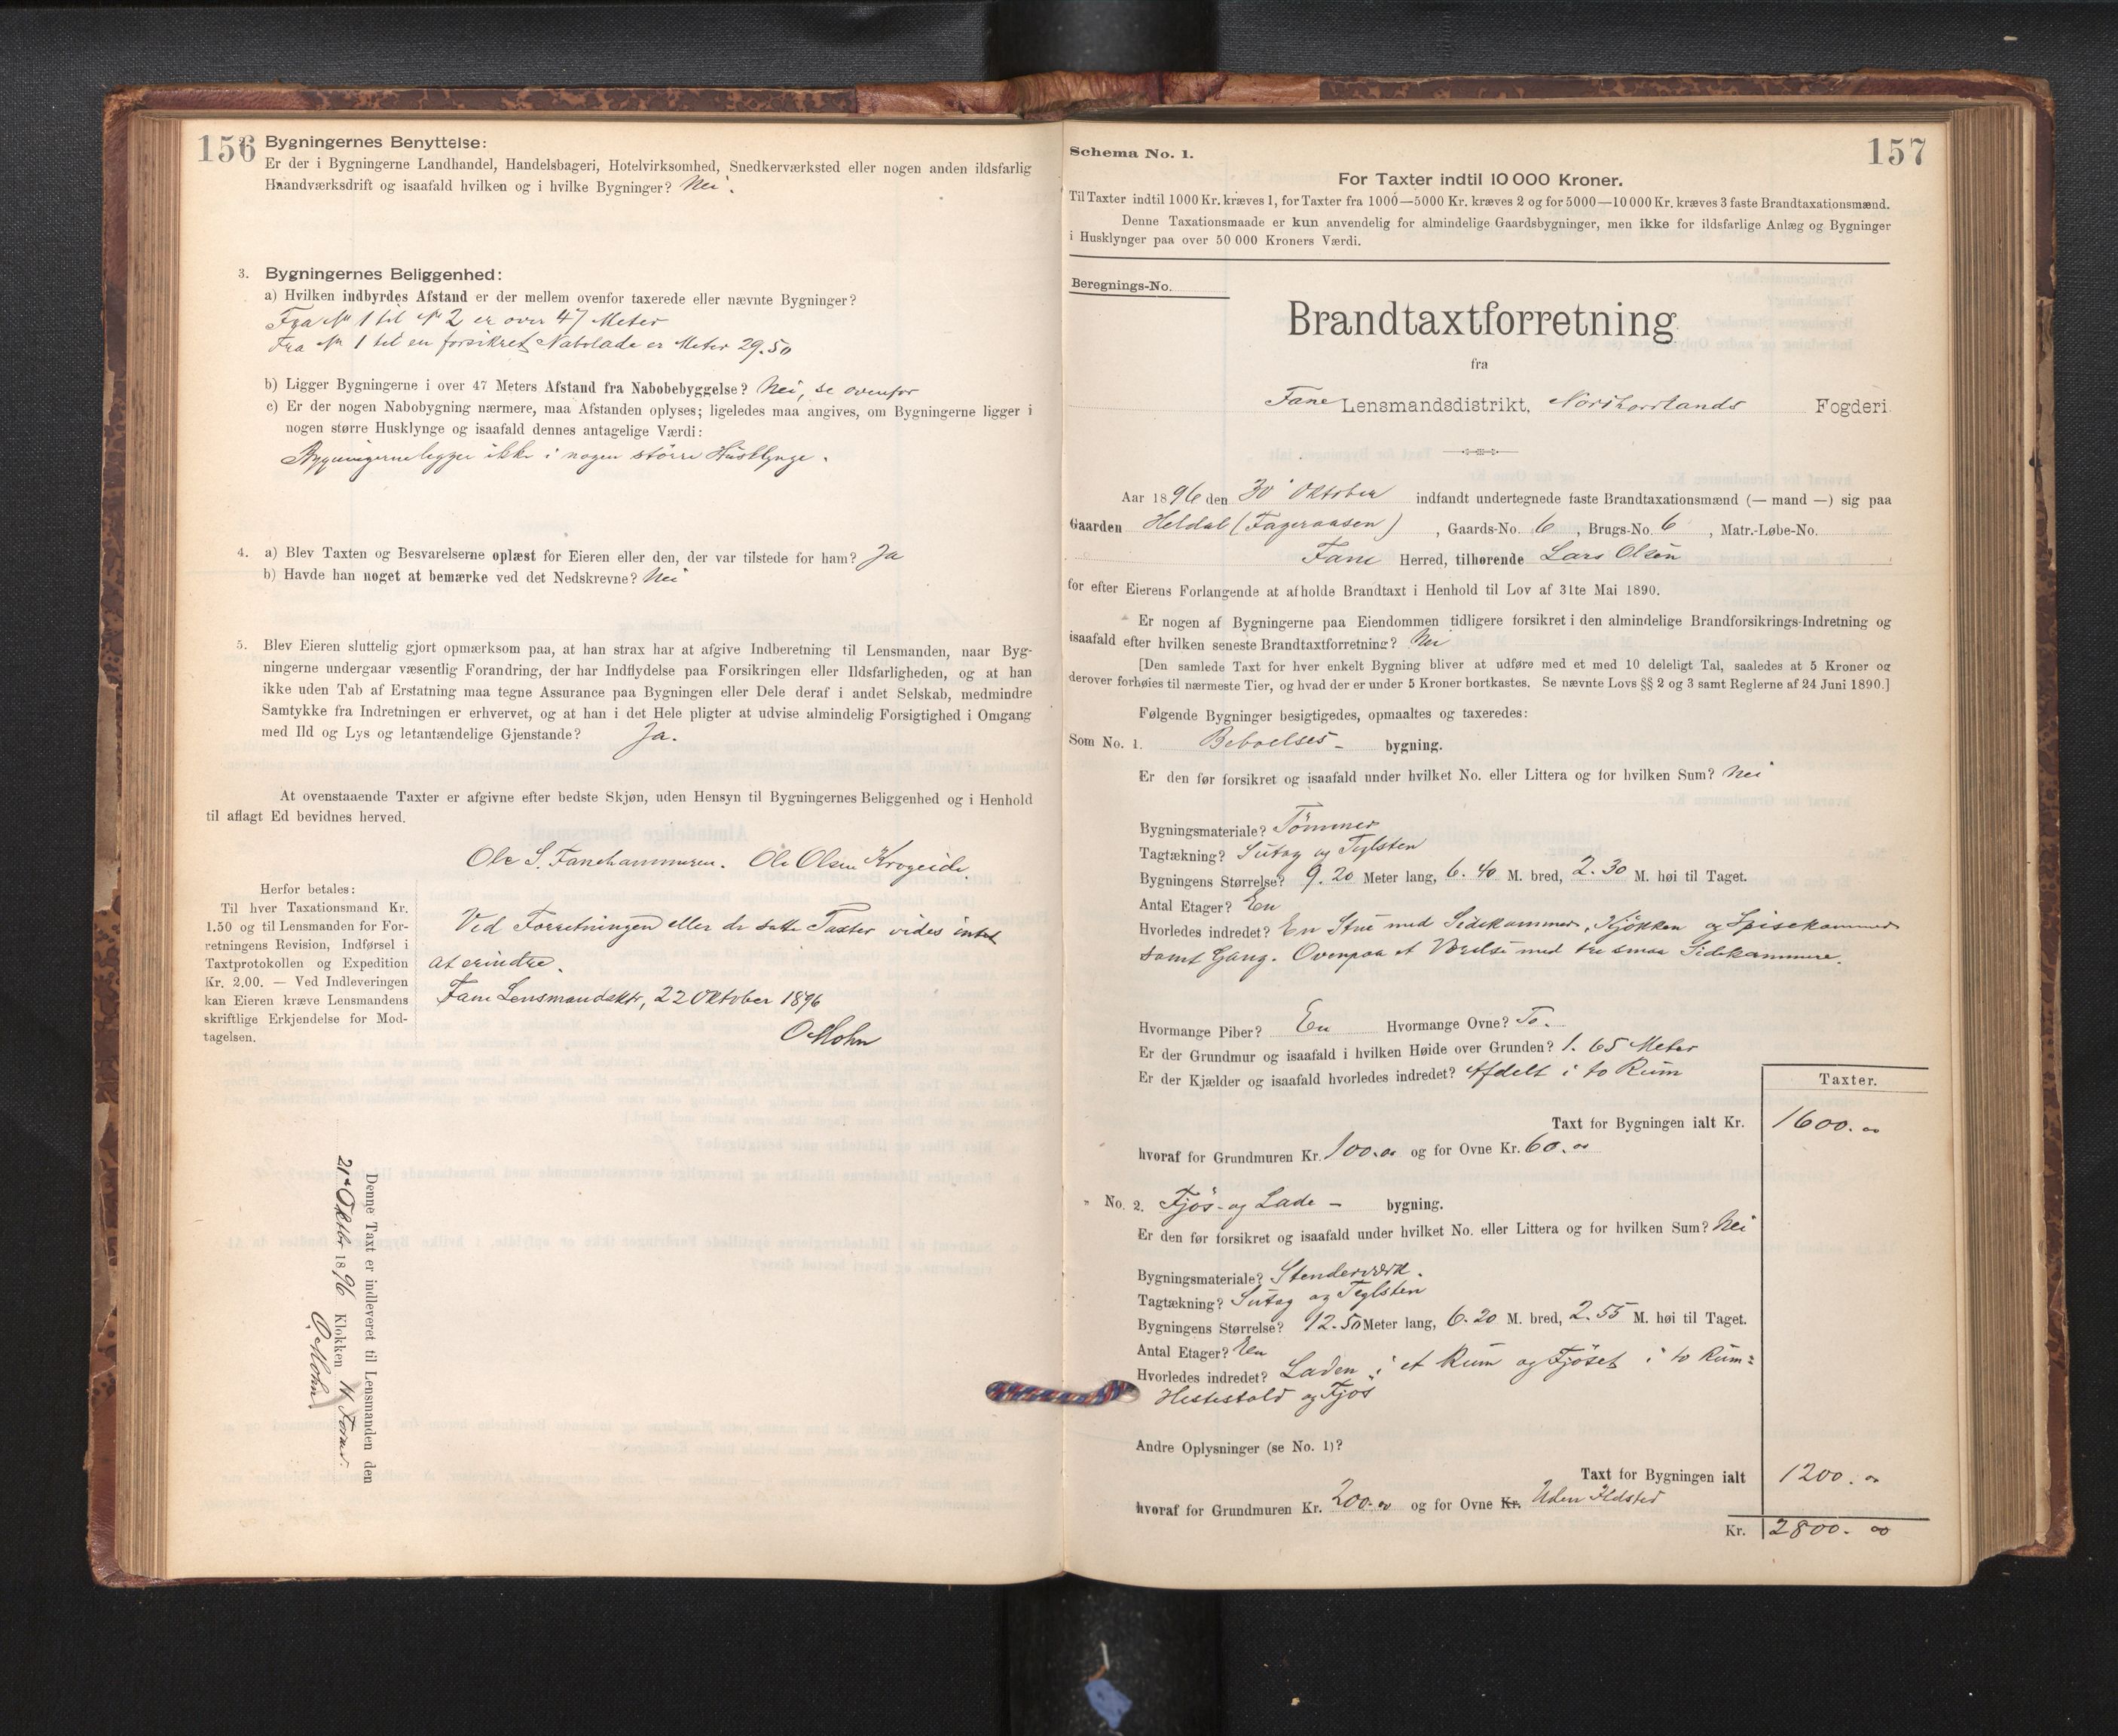 156
2. Bygningernes Benyttelse:
Er der i Bygningerne Landhandel, Handelsbageri, Hotelvirksomhed, Snedkerværksted eller nogen anden ildsfarlig
Haandværksdrift og isaafald hvilken og i hvilke Bygninger? Nei.
3. Bygningernes Beliggenhed:
a) Hvilken indbyrdes Afstand er der mellem ovenfor taxerede eller nævnte Bygninger?
Fra No 1 til No 2 er over 47 Meter
Fra No 1 til en forsikret Nabolade er Meter 29.50
b) Ligger Bygningerne i over 47 Meters Afstand fra Nabobebyggelse? Nei, se ovenfor
c) Er der nogen Nabobygning nærmere, maa Afstanden oplyses; ligeledes maa angives, om Bygningerne ligger i
nogen større Husklynge og isaafald dennes antagelige Værdi:
Bygningerne ligger ikke i nogen större Husklynge.
4. a) Blev Taxten og Besvarelserne oplæst for Eieren eller den, der var tilstede for ham? Ja
b) Havde han noget at bemærke ved det Nedskrevne? Nei
5. Blev Eieren sluttelig gjort opmærksom paa, at han strax har at afgive Indberetning til Lensmanden, naar Byg-
ningerne undergaar væsentlig Forandring, der har Indflydelse paa Forsikringen eller Ildsfarligheden, og at han
ikke uden Tab af Erstatning maa tegne Assurance paa Bygningen eller Dele deraf i andet Selskab, medmindre
Samtykke fra Indretningen er erhvervet, og at han i det Hele pligter at udvise almindelig Forsigtighed i Omgang
med Ild og Lys og letantændelige Gjenstande? Ja.
At ovenstaaende Taxter er afgivne efter bedste Skjøn, uden Hensyn til Bygningernes Beliggenhed og i Henhold
til aflagt Ed bevidnes herved.
Ole S. Fanehammeren. Ole Olsen Krogeide.
Herfor betales:
Til hver Taxationsmand Kr.
1.50 og til Lensmanden for For-
retningens Revision, Indførsel i
Taxtprotokollen og Expedition
Kr. 2.00. — Ved Indleveringen
kan Eieren kræve Lensmandens
skriftlige Erkjendelse for Mod-
tagelsen.
Ved Forretningen eller de satte Taxter vides intet
at erindre.
Fane Lensmandsktr, 22 Oktober 1896
O Mohn
Denne Taxt er indleveret til Lensmanden den
21de Oktbr 1896 Klokken 11 Form.
O Mohn
157
Schema No. 1.
For Taxter indtil 10 000 Kroner.
Til Taxter indtil 1000 Kr. kræves 1, for Taxter fra 1000—5000 Kr. kræves 2 og for 5000—10 000 Kr. kræves 3 faste Brandtaxationsmænd.
Denne Taxationsmaade er kun anvendelig for almindelige Gaardsbygninger, men ikke for ildsfarlige Anlæg og Bygninger
i Husklynger paa over 50 000 Kroners Værdi.
Beregnings-No.
Brandtaxtforretning
fra
Fane Lensmandsdistrikt, Nordhordlands Fogderi
Aar 1896 den 30 Oktober indfandt undertegnede faste Brandtaxationsmænd (— mand —) sig paa
Gaarden Heldal (Fageraasen), Gaards-No. 6, Brugs-No. 6, Matr.-Løbe-No.
Fane Herred, tilhørende Lars Olsen
for efter Eierens Forlangende at afholde Brandtaxt i Henhold til Lov af 31te Mai 1890.
Er nogen af Bygningerne paa Eiendommen tidligere forsikret i den almindelige Brandforsikrings-Indretning og
isaafald efter hvilken seneste Brandtaxtforretning? Nei
[Den samlede Taxt for hver enkelt Bygning bliver at udføre med et med 10 deleligt Tal, saaledes at 5 Kroner og
derover forhøies til nærmeste Tier, og hvad der er under 5 Kroner bortkastes. Se nævnte Lovs §§ 2 og 3 samt Reglerne af 24 Juni 1890.]
Følgende Bygninger besigtigedes, opmaaltes og taxeredes:
Som No. 1. Beboelses- bygning.
Er den før forsikret og isaafald under hvilket No. eller Littera og for hvilken Sum? Nei
Bygningsmateriale? Tömmer
Tagtækning? Sutag og Teglsten
Bygningens Størrelse? 9.20 Meter lang, 6.40 M. bred, 2.30 M. høi til Taget.
Antal Etager? En
Hvorledes indredet? En Stue med Sidekammer, Kjökken og Spisekammer
samt Gang. Ovenpaa et Værelse med tre smaa Sidekammere.
Hvormange Piber? En Hvormange Ovne? To.
Er der Grundmur og isaafald i hvilken Høide over Grunden? 1.65 Meter
Er der Kjælder og isaafald hvorledes indredet? Afdelt i to Rum
Taxter.
Taxt for Bygningen ialt Kr. 1600.00
hvoraf for Grundmuren Kr. 100.00 og for Ovne Kr. 60.00
" No. 2. Fjös- og Lade- bygning.
Er den før forsikret og isaafald under hvilket No. eller Littera og for hvilken Sum? Nei
Bygningsmateriale? Stenderværk.
Tagtækning? Sutag og Teglsten
Bygningens Størrelse? 12.50 Meter lang, 6.20 M. bred, 2.55 M. høi til Taget.
Antal Etager? En
Hvorledes indredet? Laden i et Rum og Fjöset i to Rum:
Hestestald og Fjös
Andre Oplysninger (se No. 1)?
Taxt for Bygningen ialt 1200.00
hvoraf for Grundmuren Kr. 200.00 og for Ovne Kr. Uden Ildsted
Kr. 2800.00